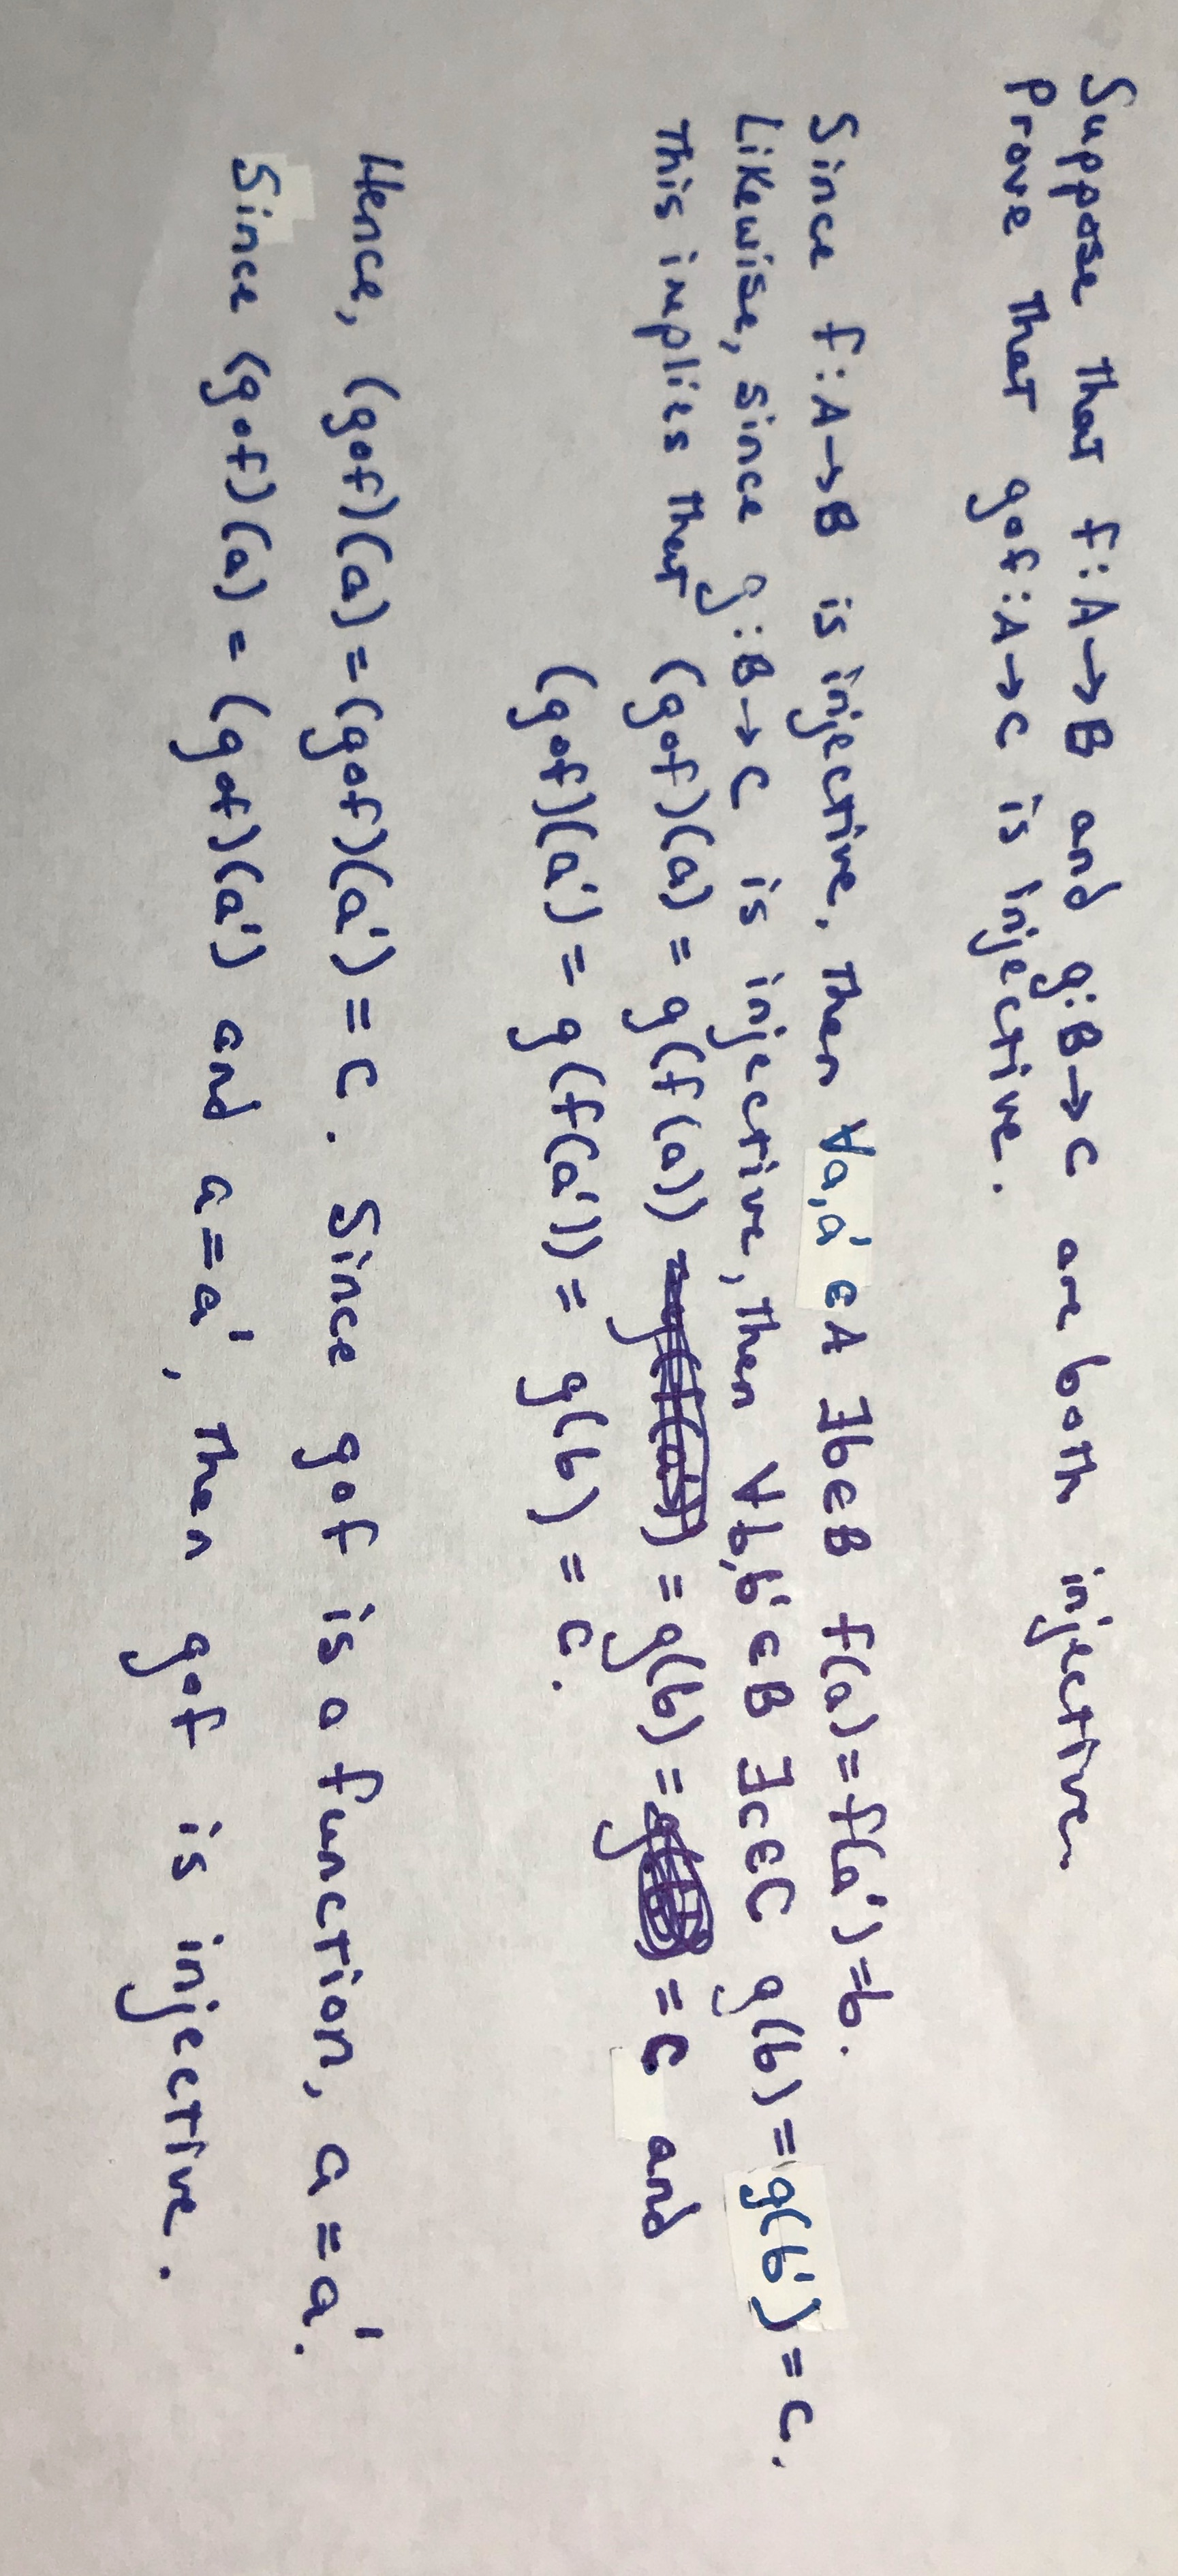 Suppose that f:A→B and g:B→C are both injective.
Prove that g∘f:A→C is injective.
Since f:A→B is injective, then ∀a,a' ∈A ∃b∈B f(a)=f(a')=b.
Likewise, since g:B→C is injective, then ∀b,b'∈B ∃c∈C g(b)=g(b')=c.
This implies that (g∘f)(a) = g(f(a)) = g(b) = c and
(g∘f)(a') = g(f(a')) = g(b) = c.
Hence, (g∘f)(a)=(g∘f)(a')=c. Since g∘f is a function, a=a'.
Since (g∘f)(a) = (g∘f)(a') and a=a', then g∘f is injective.